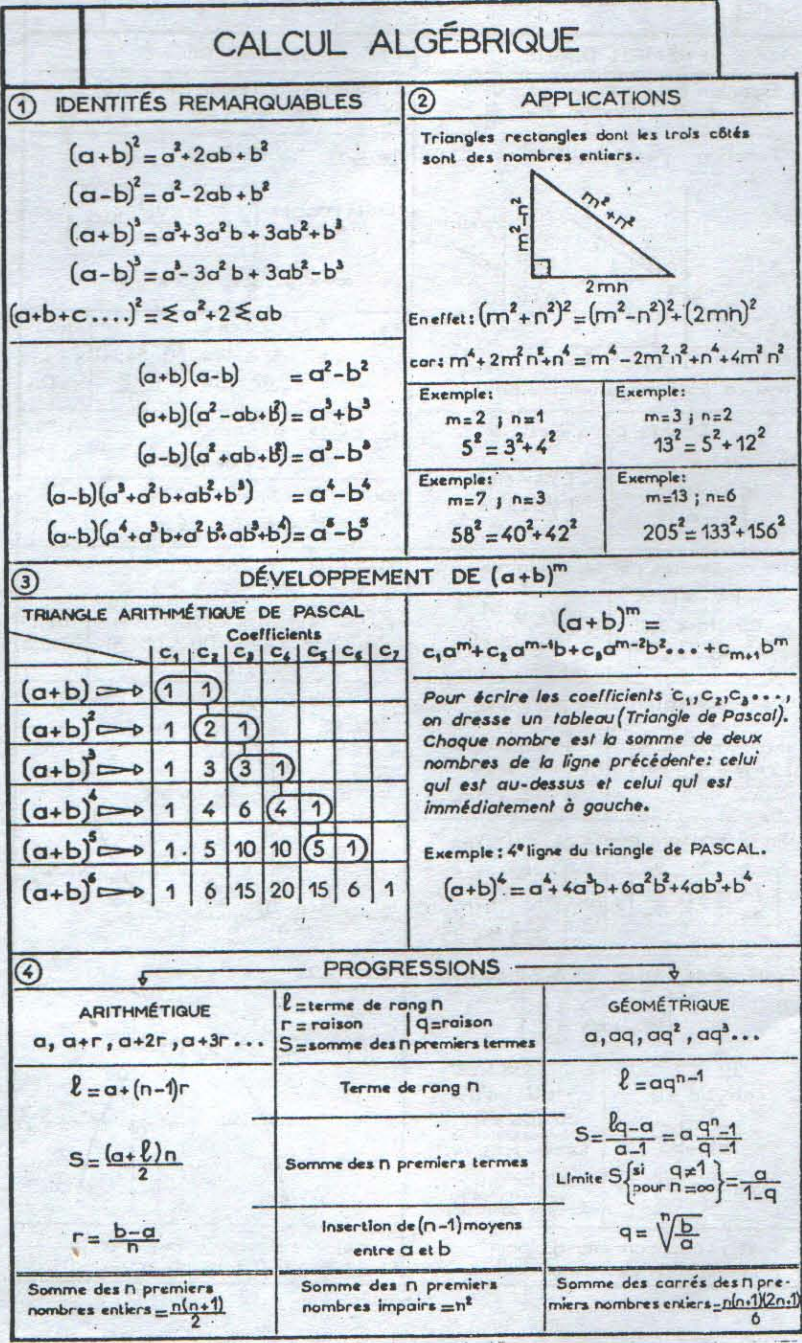 CALCUL ALGÉBRIQUE
① IDENTITÉS REMARQUABLES
(a+b)²=a²+2ab+b²
(a-b)²=a²-2ab+b²
(a+b)³=a³+3a²b+3ab²+b³
(a-b)³=a³-3a²b+3ab²-b³
(a+b+c....)²=Σa²+2Σab
(a+b)(a-b) =a²-b²
(a+b)(a²-ab+b²)=a³+b³
(a-b)(a²+ab+b²)=a³-b³
(a-b)(a³+a²b+ab²+b³) =a⁴-b⁴
(a-b)(a⁴+a³b+a²b²+ab³+b⁴)=a⁵-b⁵
② APPLICATIONS
Triangles rectangles dont les trois côtés
sont des nombres entiers.
m²-n²
m²+n²
2mn
En effet: (m²+n²)²=(m²-n²)²+(2mn)²
car: m⁴+2m²n²+n⁴=m⁴-2m²n²+n⁴+4m²n²
Exemple:
m=2 ; n=1
5²=3²+4²
Exemple:
m=3 ; n=2
13²=5²+12²
Exemple:
m=7 ; n=3
58²=40²+42²
Exemple:
m=13 ; n=6
205²=133²+156²
③ DÉVELOPPEMENT DE (a+b)ᵐ
TRIANGLE ARITHMÉTIQUE DE PASCAL
Coefficients
C₁ C₂ C₃ C₄ C₅ C₆ C₇
(a+b) 1 1
(a+b)² 1 2 1
(a+b)³ 1 3 3 1
(a+b)⁴ 1 4 6 4 1
(a+b)⁵ 1 5 10 10 5 1
(a+b)⁶ 1 6 15 20 15 6 1
(a+b)ᵐ=
c₁aᵐ+c₂aᵐ⁻¹b+c₃aᵐ⁻²b²...+cₘ₊₁bᵐ
Pour écrire les coefficients c₁,c₂,c₃...,
on dresse un tableau (Triangle de Pascal).
Chaque nombre est la somme de deux
nombres de la ligne précédente: celui
qui est au-dessus et celui qui est
immédiatement à gauche.
Exemple: 4ᵉ ligne du triangle de PASCAL.
(a+b)⁴=a⁴+4a³b+6a²b²+4ab³+b⁴
④ PROGRESSIONS
ARITHMÉTIQUE
a, a+r, a+2r, a+3r...
ℓ=terme de rang n
r=raison | q=raison
S=somme des n premiers termes
GÉOMÉTRIQUE
a, aq, aq², aq³...
ℓ=a+(n-1)r
Terme de rang n
ℓ=aqⁿ⁻¹
S=(a+ℓ)n/2
Somme des n premiers termes
S=ℓq-a/a-1=a qⁿ-1/q-1
Limite S{si q≠1 pour n=∞}=a/1-q
r=b-a/n
Insertion de (n-1) moyens
entre a et b
q=ⁿ√b/a
Somme des n premiers
nombres entiers=n(n+1)/2
Somme des n premiers
nombres impairs=n²
Somme des carrés des n pre-
miers nombres entiers=n(n+1)(2n+1)/6